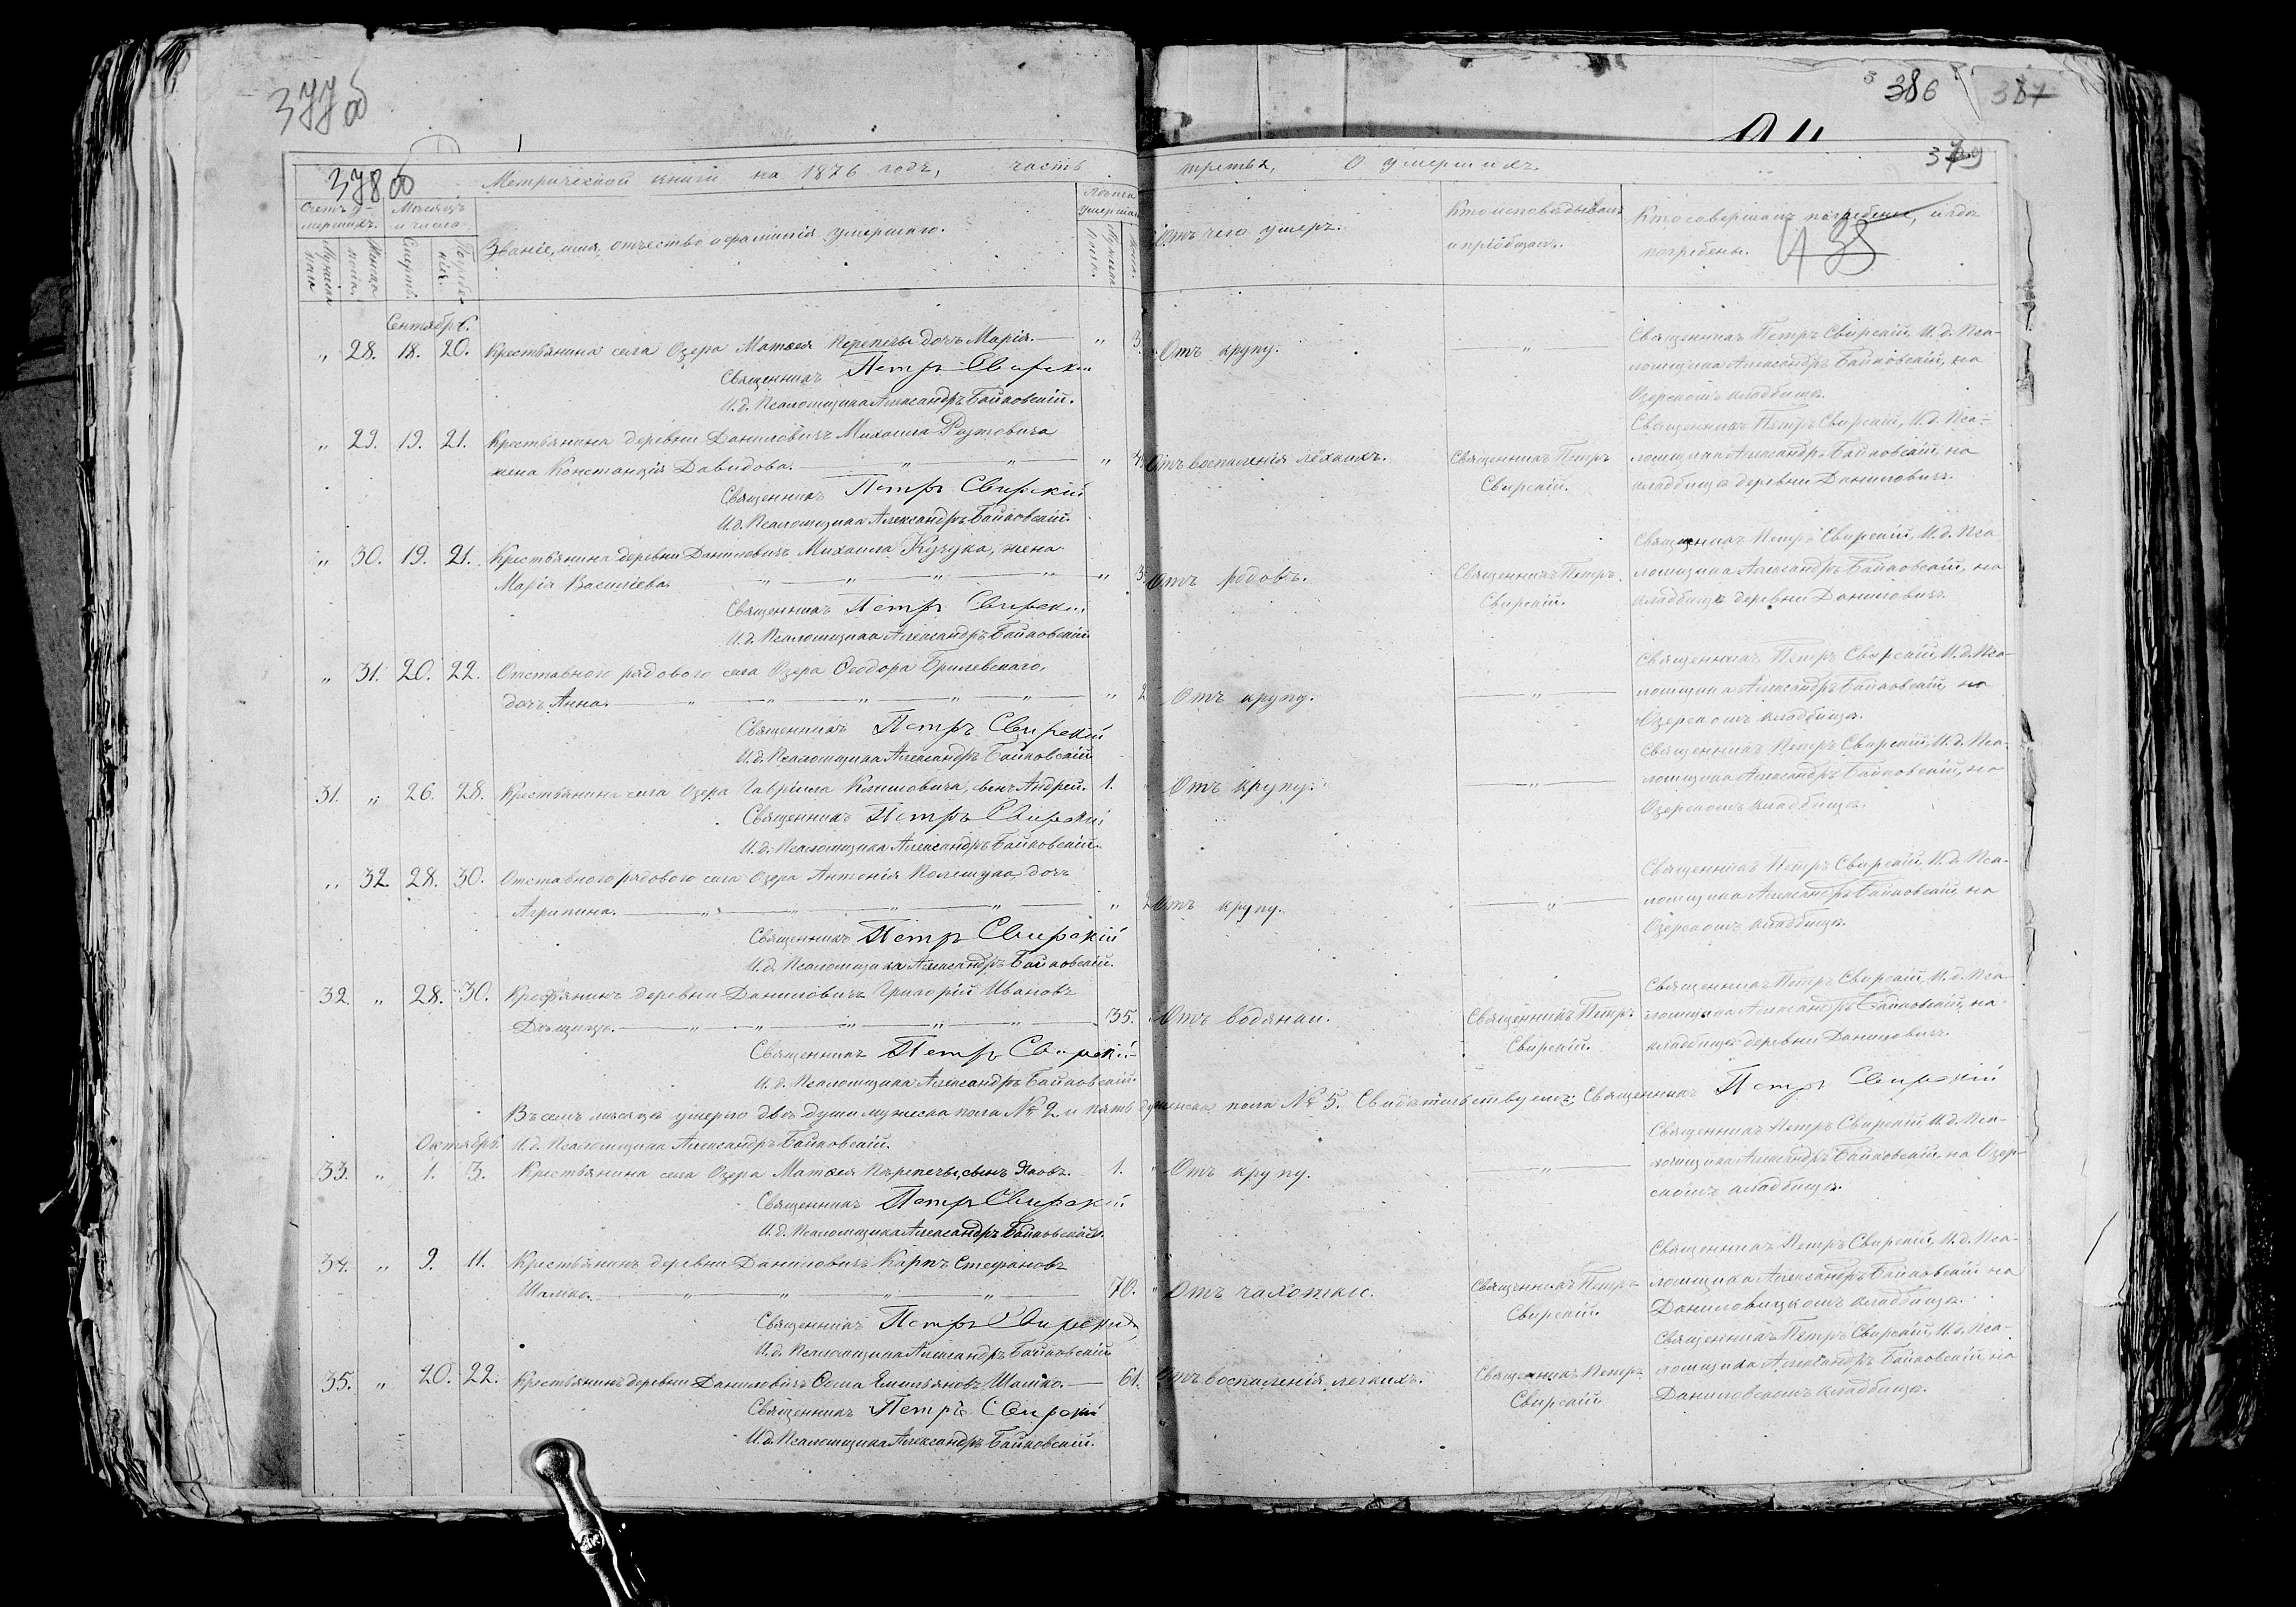 377об
386 387
378об
379
Метрической книги на 1876 годъ, часть третья, О умершихъ.
Счетъ умершихъ.
Мужеска пола
Женска пола.
Мѣсяцъ и число.
Смерть.
Погребенія.
Званіе, имя, отчество и фамилія умершаго.
Лѣта умершаго
Мужеска пола.
Женск.
Отъ чего умеръ.
Кто исповѣдывалъ и пріобщалъ.
Кто совершалъ погребеніе, и гдѣ погребены.
438
Сентябрь.
„ 28. 18. 20. Крестьянина села Озера Матѳея Перепечы дочь Марія. — „ 3. Отъ крупу. — „ —
Священникъ Петръ Свирскій, И. д. Пса-
ломщика Александръ Байковскій, на
Озерскомъ кладбищѣ.
Священникъ Петръ Свирскій
И. д. Псаломщика Александръ Байковскій.
„ 29. 19. 21. Крестьянина деревни Даниловичъ Михаила Рожковича
жена Констанція Давидова. — „ — „ — „ Отъ воспаленія лёхкихъ. Священникъ Петръ
Свирскій.
Священникъ Петръ Свирскій, И. д. Пса-
ломщика Александръ Байковскій, на
кладбищѣ деревни Даниловичъ.
Священникъ Петръ Свирскій
И. д. Псаломщика Александръ Байковскій.
„ 30. 19. 21. Крестьянина деревни Даниловичъ Михаила Кучука, жена
Марія Василіева. — „ — „ — „ — „ — „ Отъ родовъ. Священникъ Петръ
Свирскій.
Священникъ Петръ Свирскій, И. д. Пса-
ломщика Александръ Байковскій, на
кладбищѣ деревни Даниловичъ.
Священникъ Петръ Свирскій
И. д. Псаломщика Александръ Байковскій.
„ 31. 20. 22. Отставного рядового села Озера Ѳеодора Брилевскаго,
дочь Анна. — „ — „ — „ — „ — „ 2 Отъ крупу. — „ —
Священникъ Петръ Свирскій, И. д. Пса-
ломщика Александръ Байковскій, на
Озерскомъ кладбищѣ.
Священникъ Петръ Свирскій
И. д. Псаломщика Александръ Байковскій.
31. „ 26. 28. Крестьянина села Озера Гавріила Климовича, сынъ Андрей. 1. „ Отъ крупу. — „ —
Священникъ Петръ Свирскій, И. д. Пса-
ломщика Александръ Байковскій, на
Озерскомъ кладбищѣ.
Священникъ Петръ Свирскій
И. д. Псаломщика Александръ Байковскій.
„ 32. 28. 30. Отставного рядового села Озера Антонія Колещука, дочь
Агрипина. — „ — „ — „ — „ — „ Отъ крупу. — „ —
Священникъ Петръ Свирскій, И. д. Пса-
ломщика Александръ Байковскій, на
Озерскомъ кладбищѣ.
Священникъ Петръ Свирскій
И. д. Псаломщика Александръ Байковскій.
32. „ 28. 30. Крестьянинъ деревни Даниловичъ Григорій Ивановъ
— „ — „ — „ — „ — „ — 35. Отъ водянки. Священникъ Петръ
Свирскій.
Священникъ Петръ Свирскій, И. д. Пса-
ломщика Александръ Байковскій, на
кладбищѣ деревни Даниловичъ.
Священникъ Петръ Свирскій
И. д. Псаломщика Александръ Байковскій.
Въ семъ мѣсяцѣ умерло двѣ души мужеска пола № 2 и пять душ женска пола № 5. Свидѣтельствуемъ: Священникъ Петръ Свирскій
И. д. Псаломщика Александръ Байковскій.
Октябрь.
33. „ 1. 3. Крестьянина села Озера Матѳея Перепечы, сынъ Яковъ. 1. „ Отъ крупу. — „ —
Священникъ Петръ Свирскій И. д. Пса-
ломщика Александръ Байковскій, на Озер-
скомъ кладбищѣ.
Священникъ Петръ Свирскій
И. д. Псаломщика Александръ Байковскій.
34. „ 9. 11. Крестьянинъ деревни Даниловичъ Карпъ Стефановъ
Шалко. — „ — „ — „ — „ — 70. „ Отъ чахотки. Священникъ Петръ
Свирскій.
Священникъ Петръ Свирскій, И. д. Пса-
ломщика Александръ Байковскій на
Даниловицкомъ кладбищѣ.
Священникъ Петръ Свирскій
И. д. Псаломщика Александръ Байковскій
35. „ 20. 22. Крестьянинъ деревни Даниловичъ Ѳома Емильяновъ Шалко. — 61. Отъ воспаленія легкихъ. Священникъ Петръ
Свирскій
Священникъ Петръ Свирскій, И. д. Пса-
ломщика Александръ Байковскій, на
Даниловскомъ кладбищѣ.
Священникъ Петръ Свирскій
И. д. Псаломщика Александръ Байковскій.